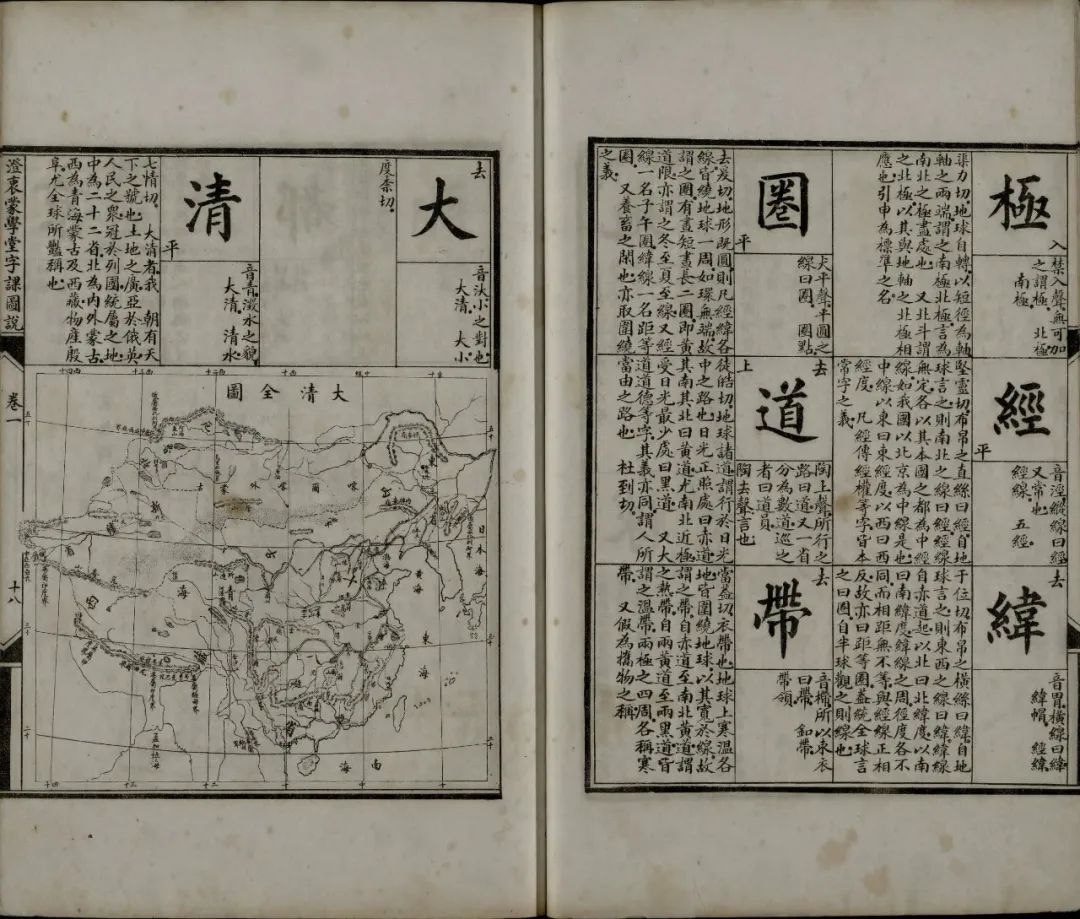 極
入
禁入聲無可加
之謂極 北極
南極
渠力切地球自轉以短徑為軸
軸之兩端謂之南極北極言為
南北之極盡處也 又北斗謂
之北極以其與地軸之北極相
應也引申為標準之名
經
平
音涇縱線曰經
又常也
經線 五經
堅靈切布帛之直絲曰經自地
球言之則南北之線曰經經線
無定各以其本國之都為中經
線如我國以北京為中線是也
中線以東曰東經度以西曰西
經度 凡經傳經權等字皆本
常字之義
緯
去
音胃橫線曰緯
緯帽 經緯
于位切布帛之橫絲曰緯自地
球言之則東西之線曰緯緯線
自赤道起以北曰北緯度以南
曰南緯度緯線之周徑度各不
同而相距無不等與經線正相
反故亦曰距等圈蓋統全球言
之曰圈自半球觀之則線也
圈
平
犬平聲平圓之
線曰圈 圈點
去爰切地形既圓則凡經緯各
線皆繞地球一周如環無端故
謂之圈有晝短晝長二圈即黃
道限亦謂之冬至夏至線又經
線一名子午圈緯線一名距等
圈 又養畜之閑也亦取圍繞
之義
道
去
上
陶上聲所行之
路曰道又一省
分為數道巡之
者曰道員
陶去聲言也
徒皓切地球諸道謂行於日光
中之路也日光正照處曰赤道
其南其北曰黃道光南北近極
受日光最少處曰黑道 又大
道道德等字其義亦同謂人所
當由之路也 杜到切
帶
去
音襘所以束衣
曰帶 紳帶
帶領
當蓋切衣帶也地球上寒溫各
地皆圍繞地球以其實於線故
謂之帶自赤道至南北黃道謂
之熱帶自兩黃道至兩黑道皆
謂之溫帶兩極之四周各稱寒
帶 又假為攜物之稱
大
去
音汰小之對也
大清 大小
度柰切
清
平
音青澂水之貌
大清 清水
七情切 大清者我 朝有天
下之號也土地之廣亞於俄英
人民之衆冠於列國統屬之地
中為二十二省北為內外蒙古
西為青海蒙古及西藏物產殷
阜尤全球所豔稱也
大清全圖
外蒙古
喀爾喀
日本海
黃海
東海
南海
青海
孟加拉海
澄衷蒙學堂字課圖說
卷一
十八